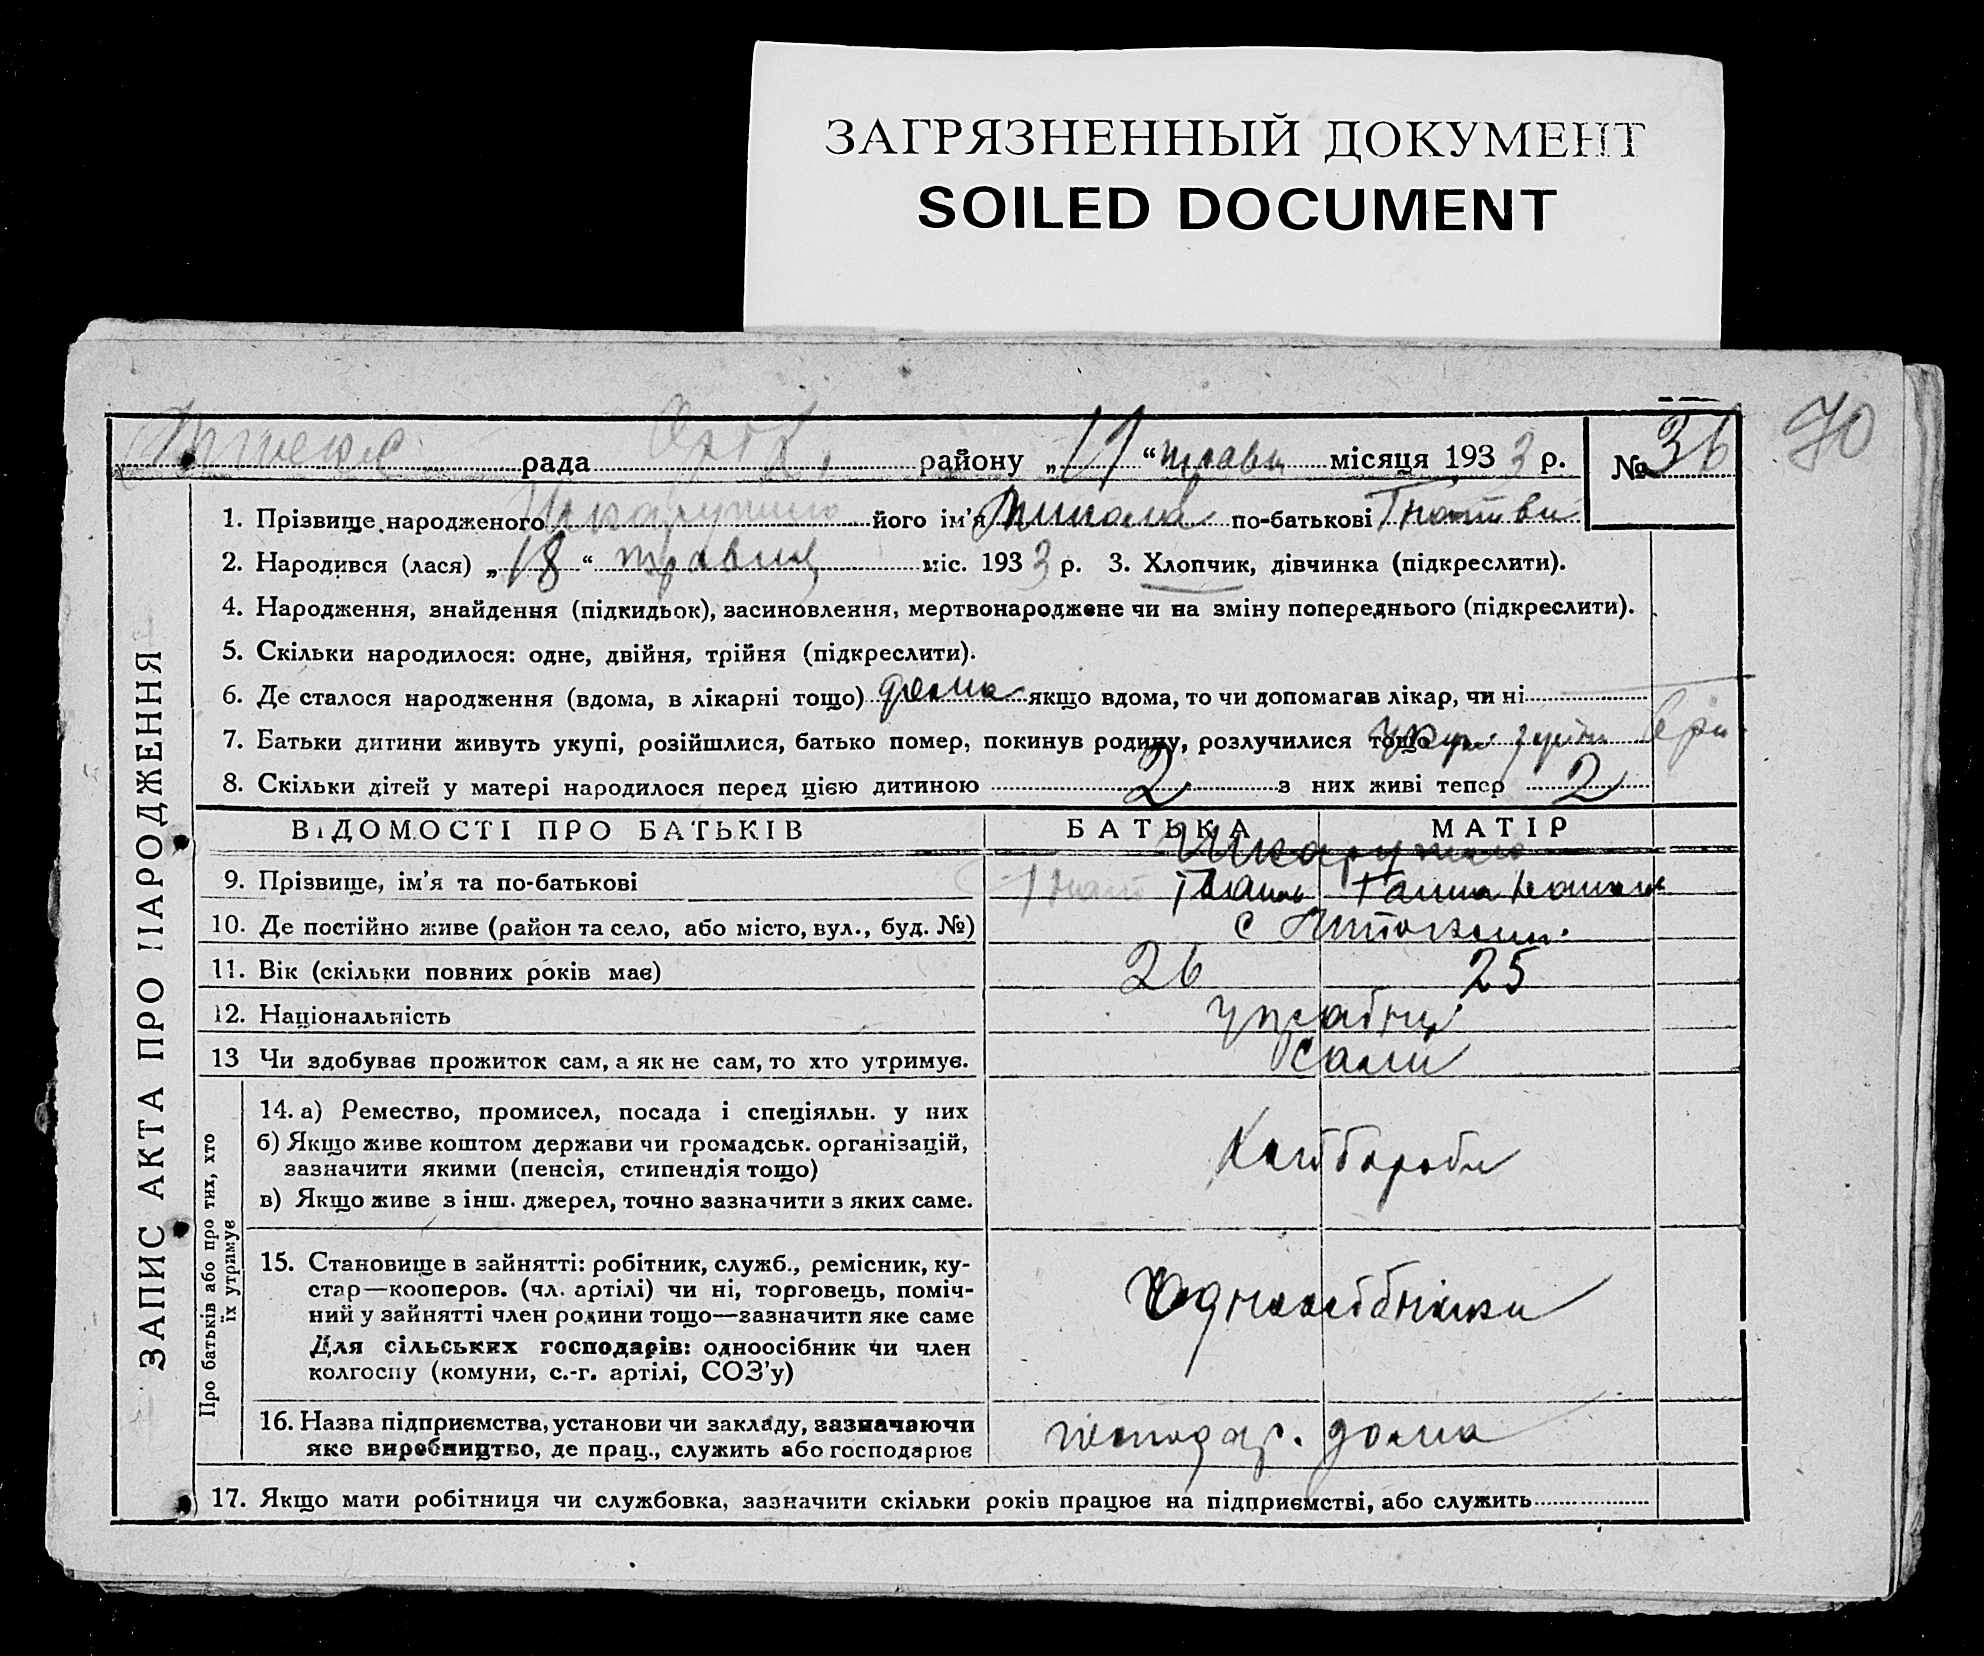 ЗАГРЯЗНЕННЫЙ ДОКУМЕНТ
SOILED DOCUMENT
70
рада району „ “ травн місяця 1933 р. № 36
1. Прізвище народженого Шкарупило його ім'я Микола по-батькові Гнатови
2. Народився (лася) „18“ травня міс. 1933 р. 3. Хлопчик, дівчинка (підкреслити).
4. Народження, знайдення (підкидьок), засиновлення, мертвонароджене чи на зміну попереднього (підкреслити).
5. Скільки народилося: одне, двійня, трійня (підкреслити).
6. Де сталося народження (вдома, в лікарні тощо) дома якщо вдома, то чи допомагав лікар, чи ні
7. Батьки дитини живуть укупі, розійшлися, батько помер, покинув родину, розлучилися тощо
8. Скільки дітей у матері народилося перед цією дитиною 2 з них живі тепер 2
ВІДОМОСТІ ПРО БАТЬКІВ БАТЬКА МАТІР
Шкарупило
9. Прізвище, ім'я та по-батькові Гнат Ганна
10. Де постійно живе (район та село, або місто, вул., буд. №) с
11. Вік (скільки повних років має) 26 25
12. Національність
13 Чи здобуває прожиток сам, а як не сам, то хто утримує. сами
14. а) Ремество, промисел, посада і спеціяльн. у них
б) Якщо живе коштом держави чи громадськ. організацій,
зазначити якими (пенсія, стипендія тощо)
в) Якщо живе з інш. джерел, точно зазначити з яких саме.
Хлібороби
15. Становище в зайнятті: робітник, служб., ремісник, ку-
стар—кооперов. (чл. артілі) чи ні, торговець, поміч-
ний у зайнятті член родини тощо—зазначити яке саме
Для сільських господарів: одноосібник чи член
колгоспу (комуни, с.-г. артілі, СОЗ'у)
одноосібники
16. Назва підприємства, установи чи закладу, зазначаючи
яке виробництво, де прац., служить або господарює
господар. дома
17. Якщо мати робітниця чи службовка, зазначити скільки років працює на підприємстві, або служить
ЗАПИС АКТА ПРО НАРОДЖЕННЯ
Про батьків або про тих, хто
їх утримує